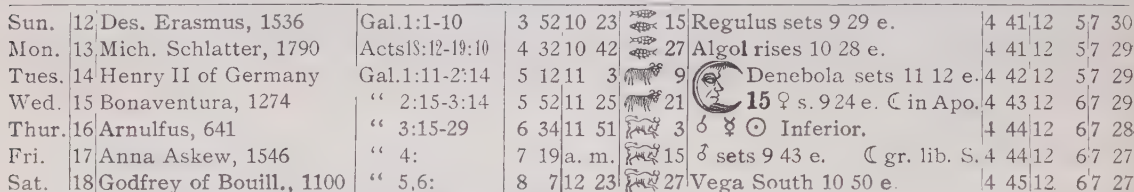 Sun. 12 Des. Erasmus, 1536 Gal.1:1-10 3 52 10 23 15 Regulus sets 9 29 e. 4 41 12 5 7 30
Mon. 13 Mich. Schlatter, 1790 Acts18:12-19:10 4 32 10 42 27 Algol rises 10 28 e. 4 41 12 5 7 29
Tues. 14 Henry II of Germany Gal.1:11-2:14 5 12 11 3 9 Denebola sets 11 12 e. 4 42 12 5 7 29
Wed. 15 Bonaventura, 1274 “ 2:15-3:14 5 52 11 25 21 15 ♀ s. 9 24 e. ☾ in Apo. 4 43 12 6 7 29
Thur. 16 Arnulfus, 641 “ 3:15-29 6 34 11 51 3 ☌ ☿ ☉ Inferior. 4 44 12 6 7 28
Fri. 17 Anna Askew, 1546 “ 4: 7 19 a. m. 15 ♂ sets 9 43 e. ☾ gr. lib. S. 4 44 12 6 7 27
Sat. 18 Godfrey of Bouill., 1100 “ 5,6: 8 7 12 23 27 Vega South 10 50 e. 4 45 12 6 7 27